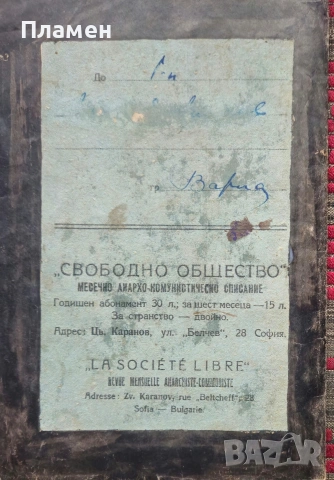 Пламен
До Г-н
гр. Варна
„СВОБОДНО ОБЩЕСТВО“
МЕСЕЧНО АНАРХО-КОМУНИСТИЧЕСНО СПИСАНИЕ
Годишен абонамент 30 л.; за шест месеца — 15 л.
За странство — двойно.
Адрес: Цв. Каранов, ул. „Белчев“, 28 София.
„LA SOCIÉTÉ LIBRE“
REVUE MENSUELLE ANARCHISTE-COMMUNISTE
Adresse: Zv. Karanov, rue „Beltcheff“, 28
Sofia — Bulgarie.
BAZAR
bg